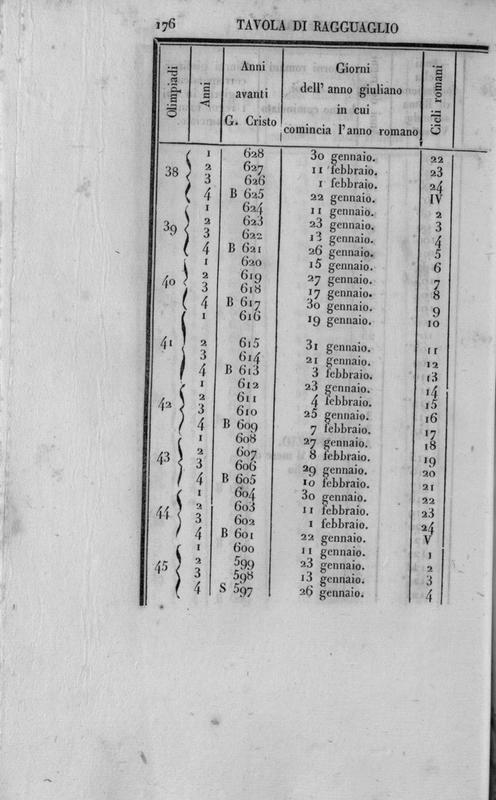 176 TAVOLA DI RAGGUAGLIO
Olimpiadi Anni Anni avanti G. Cristo Giorni dell' anno giuliano in cui comincia l'anno romano Cicli romani
38 1 628 30 gennaio. 22
2 627 11 febbraio. 23
3 626 1 febbraio. 24
4 B 625 22 gennaio. IV
39 1 624 11 gennaio. 2
2 623 23 gennaio. 3
3 622 13 gennaio. 4
4 B 621 26 gennaio. 5
40 1 620 15 gennaio. 6
2 619 27 gennaio. 7
3 618 17 gennaio. 8
4 B 617 30 gennaio. 9
41 1 616 19 gennaio. 10
2 615 31 gennaio. 11
3 614 21 gennaio. 12
4 B 613 3 febbraio. 13
42 1 612 23 gennaio. 14
2 611 4 febbraio. 15
3 610 25 gennaio. 16
4 B 609 7 febbraio. 17
43 1 608 27 gennaio. 18
2 607 8 febbraio. 19
3 606 29 gennaio. 20
4 B 605 10 febbraio. 21
44 1 604 30 gennaio. 22
2 603 11 febbraio. 23
3 602 1 febbraio. 24
4 B 601 22 gennaio. V
45 1 600 11 gennaio. 1
2 599 23 gennaio. 2
3 598 13 gennaio. 3
4 S 597 26 gennaio. 4